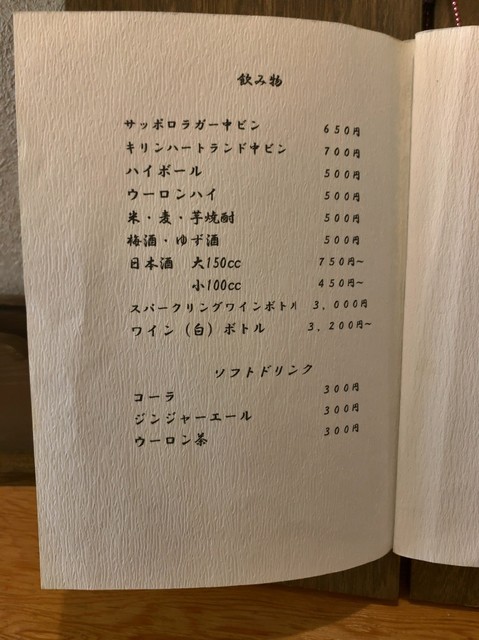 飲み物
サッポロラガー中ビン 650円
キリンハートランド中ビン 700円
ハイボール 500円
ウーロンハイ 500円
米・麦・芋焼酎 500円
梅酒・ゆず酒 500円
日本酒 大150cc 750円~
小100cc 450円~
スパークリングワインボトル 3,000円
ワイン(白)ボトル 3,200円~
ソフトドリンク
コーラ 300円
ジンジャーエール 300円
ウーロン茶 300円